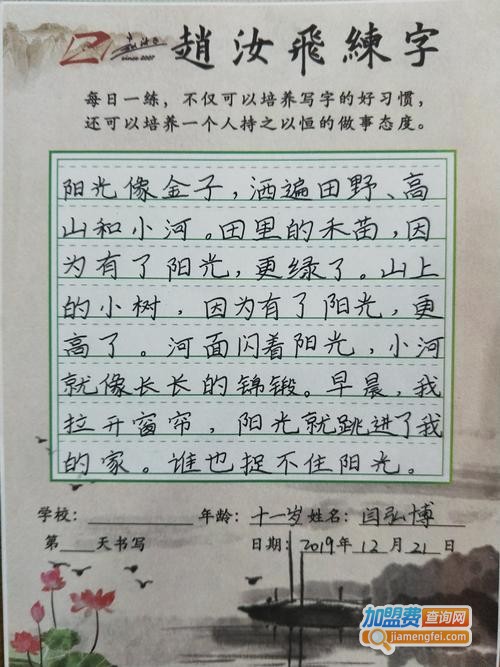 趙汝飛練字
since 2007
每日一练，不仅可以培养写字的好习惯，
还可以培养一个人持之以恒的做事态度。
阳光像金子，洒遍田野、高
山和小河。田里的禾苗，因
为有了阳光，更绿了。山上
的小树，因为有了阳光，更
高了。河面闪着阳光，小河
就像长长的锦锻。早晨，我
拉开窗帘，阳光就跳进了我
的家。谁也捉不住阳光。
学校：年龄：十一岁姓名：闫弘博
第 天书写 日期：2019年12月21日
加盟费查询网
jiamengfei.com